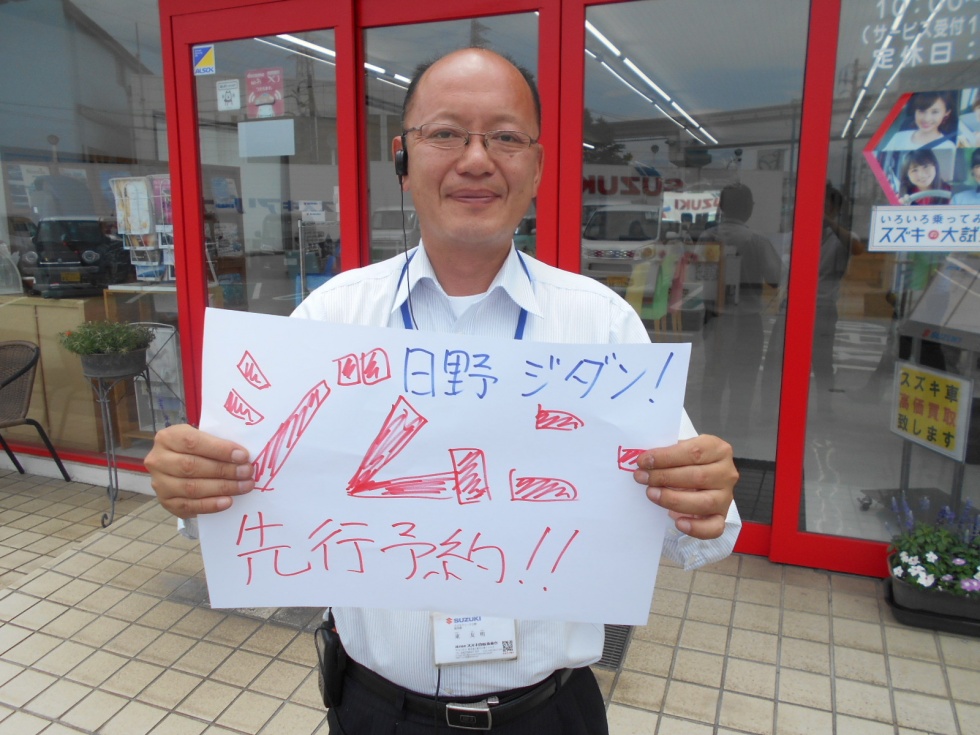 10:00-
(サービス受付1
定休日:
ALSOK
SUZUKI
いろいろ乗ってみ
スズキの大試
日野 ジダン!
ジムニー
先行予約!!
スズキ車
高価買取
致します
SUZUKI